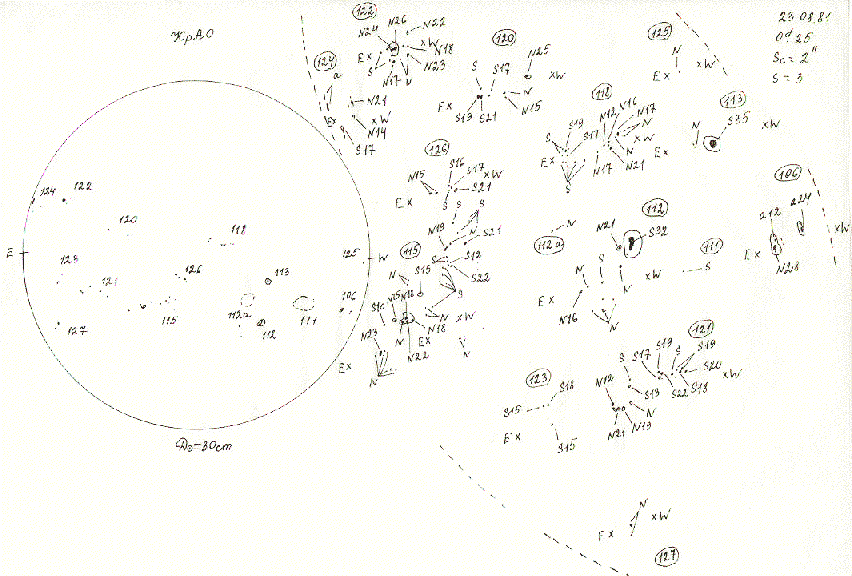 Кр.АО
23.08.81
0d 25
S = 3
122
N26
N22
N24
xW
N18
Ex
S
N23
N17
N
124
a
N21
Ex
xW
N14
S17
120
N25
S
S17
xW
Ex
N
N15
S13
S21
125
N
xW
Ex
118
N16
N12
N17
S19
S17
N
S
xW
Ex
N
N17
N21
S
113
N
S35
xW
Ex
126
S16
N15
S17
xW
S21
Ex
S
S
S
N19
S21
S
S12
S22
S
106
212
224
xW
Ex
N28
112
N21
S32
112a
N
S
xW
Ex
N
N16
N
111
S
115
N
S15
N
N18
Ex
xW
N22
N23
N
Ex
N
121
S19
S17
S
S19
S
S20
xW
N12
S13
S22
S18
N
N21
N19
123
S14
S15
Ex
S15
N
xW
Ex
127
124
122
120
118
E
W
125
123
126
113
121
106
115
112a
111
112
127
D☉=30cm